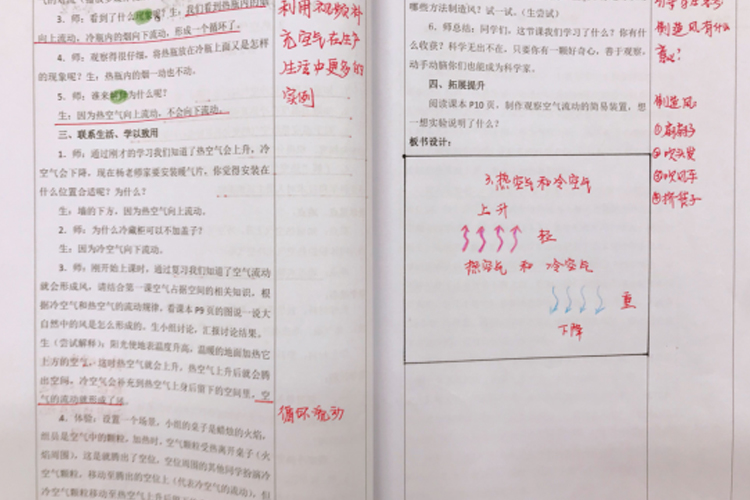 3．师：看到了什么现象？生：我们看到热瓶内的烟
向上流动，冷瓶内的烟向下流动，形成一个循环了。
4．师：观察得很仔细，将热瓶放在冷瓶上面又是怎样
的现象呢？生：热瓶内的烟一动也不动。
5．师：谁来解释为什么呢？
生：因为热空气向上流动，不会向下流动。
三、联系生活、学以致用
1．师：通过刚才的学习我们知道了热空气会上升，冷
空气会下降，现在杨老师家要安装暖气片，你觉得安装在
什么位置合适呢？为什么？
生：墙的下方，因为热空气向上流动。
2．师：为什么冷藏柜可以不加盖子？
生：因为冷空气向下流动。
3．师：刚开始上课时，通过复习我们知道了空气流动
就会形成风，请结合第一课空气占据空间的相关知识，根
据冷空气和热空气的流动规律，看课本P9页的图说一说大
自然中的风是怎么形成的，生小组讨论，汇报讨论结果。
生（尝试解释）：阳光使地表温度升高，温暖的地面加热它
上方的空气，这时热空气就会上升，热空气上升后就会腾
出空间，冷空气会补充到热空气上身后留下的空间里，空
气的流动就形成了风。
4．体验：设置一个场景，小组的桌子是蜡烛的火焰，
组员是空气中的颗粒，加热时，空气颗粒受热离开桌子（火
焰周围），这是就腾出了空位，空位周围的其他同学扮演冷
空气颗粒，移动至腾空的空位上（代表冷空气的流动），但
利用视频补
充空气在生产
生活中更多的
实例
循环流动
哪些方法制造风？试一试。（生尝试）
6．师总结：同学们，这节课我们学习了什么？你有什
么收获？科学无出不在，只要你有一颗好奇心，善于观察，
动手动脑你们也能成为科学家。
四、拓展提升
阅读课本P10页，制作观察空气流动的简易装置，想
一想实验说明了什么？
板书设计：
3.热空气和冷空气
上升
轻
热空气 和 冷空气
重
下降
制造风有什么
制造风：
①扇扇子
②吹头发
③吹风车
④挤袋子